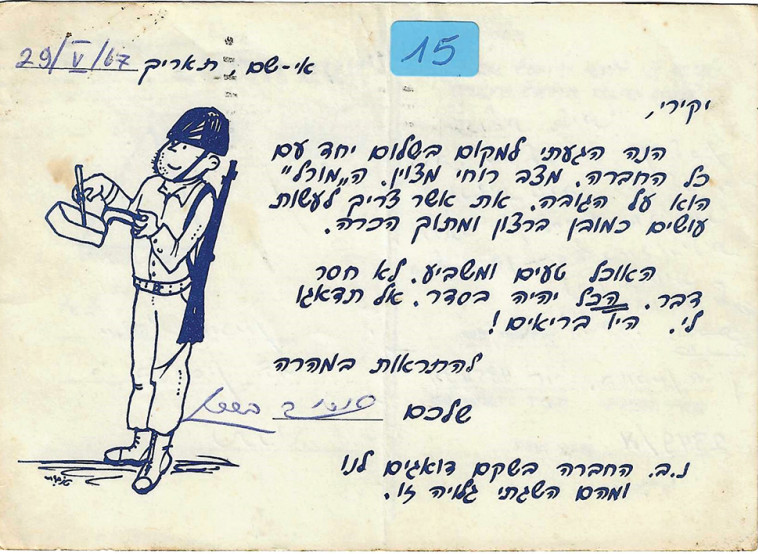 15
אי-שם תאריך 29/V/67
יקירי,
הנה הגעתי למקום בשלום יחד עם
כל החברה. מצב רוחי מצוין. ה"מורל"
הוא על הגובה. את אשר צריך לעשות
עושים כמובן ברצון ומתוך הכרה.
האוכל טעים ומשביע. לא חסר
דבר. הכל יהיה בסדר. אל תדאגו
לי. היו בריאים!
להתראות במהרה
שלכם
נ.ב. החברה בשקם דואגים לנו
ומהם השגתי גלויה זו.